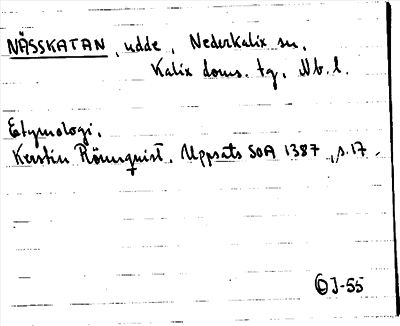 NÄSSKATAN, udde, Nederkalix sn,
Kalix doms. tg, Nb. l.
Etymologi.
Kerstin Rönnquist. Uppsats SOA 1387, s. 17.
OJ-55